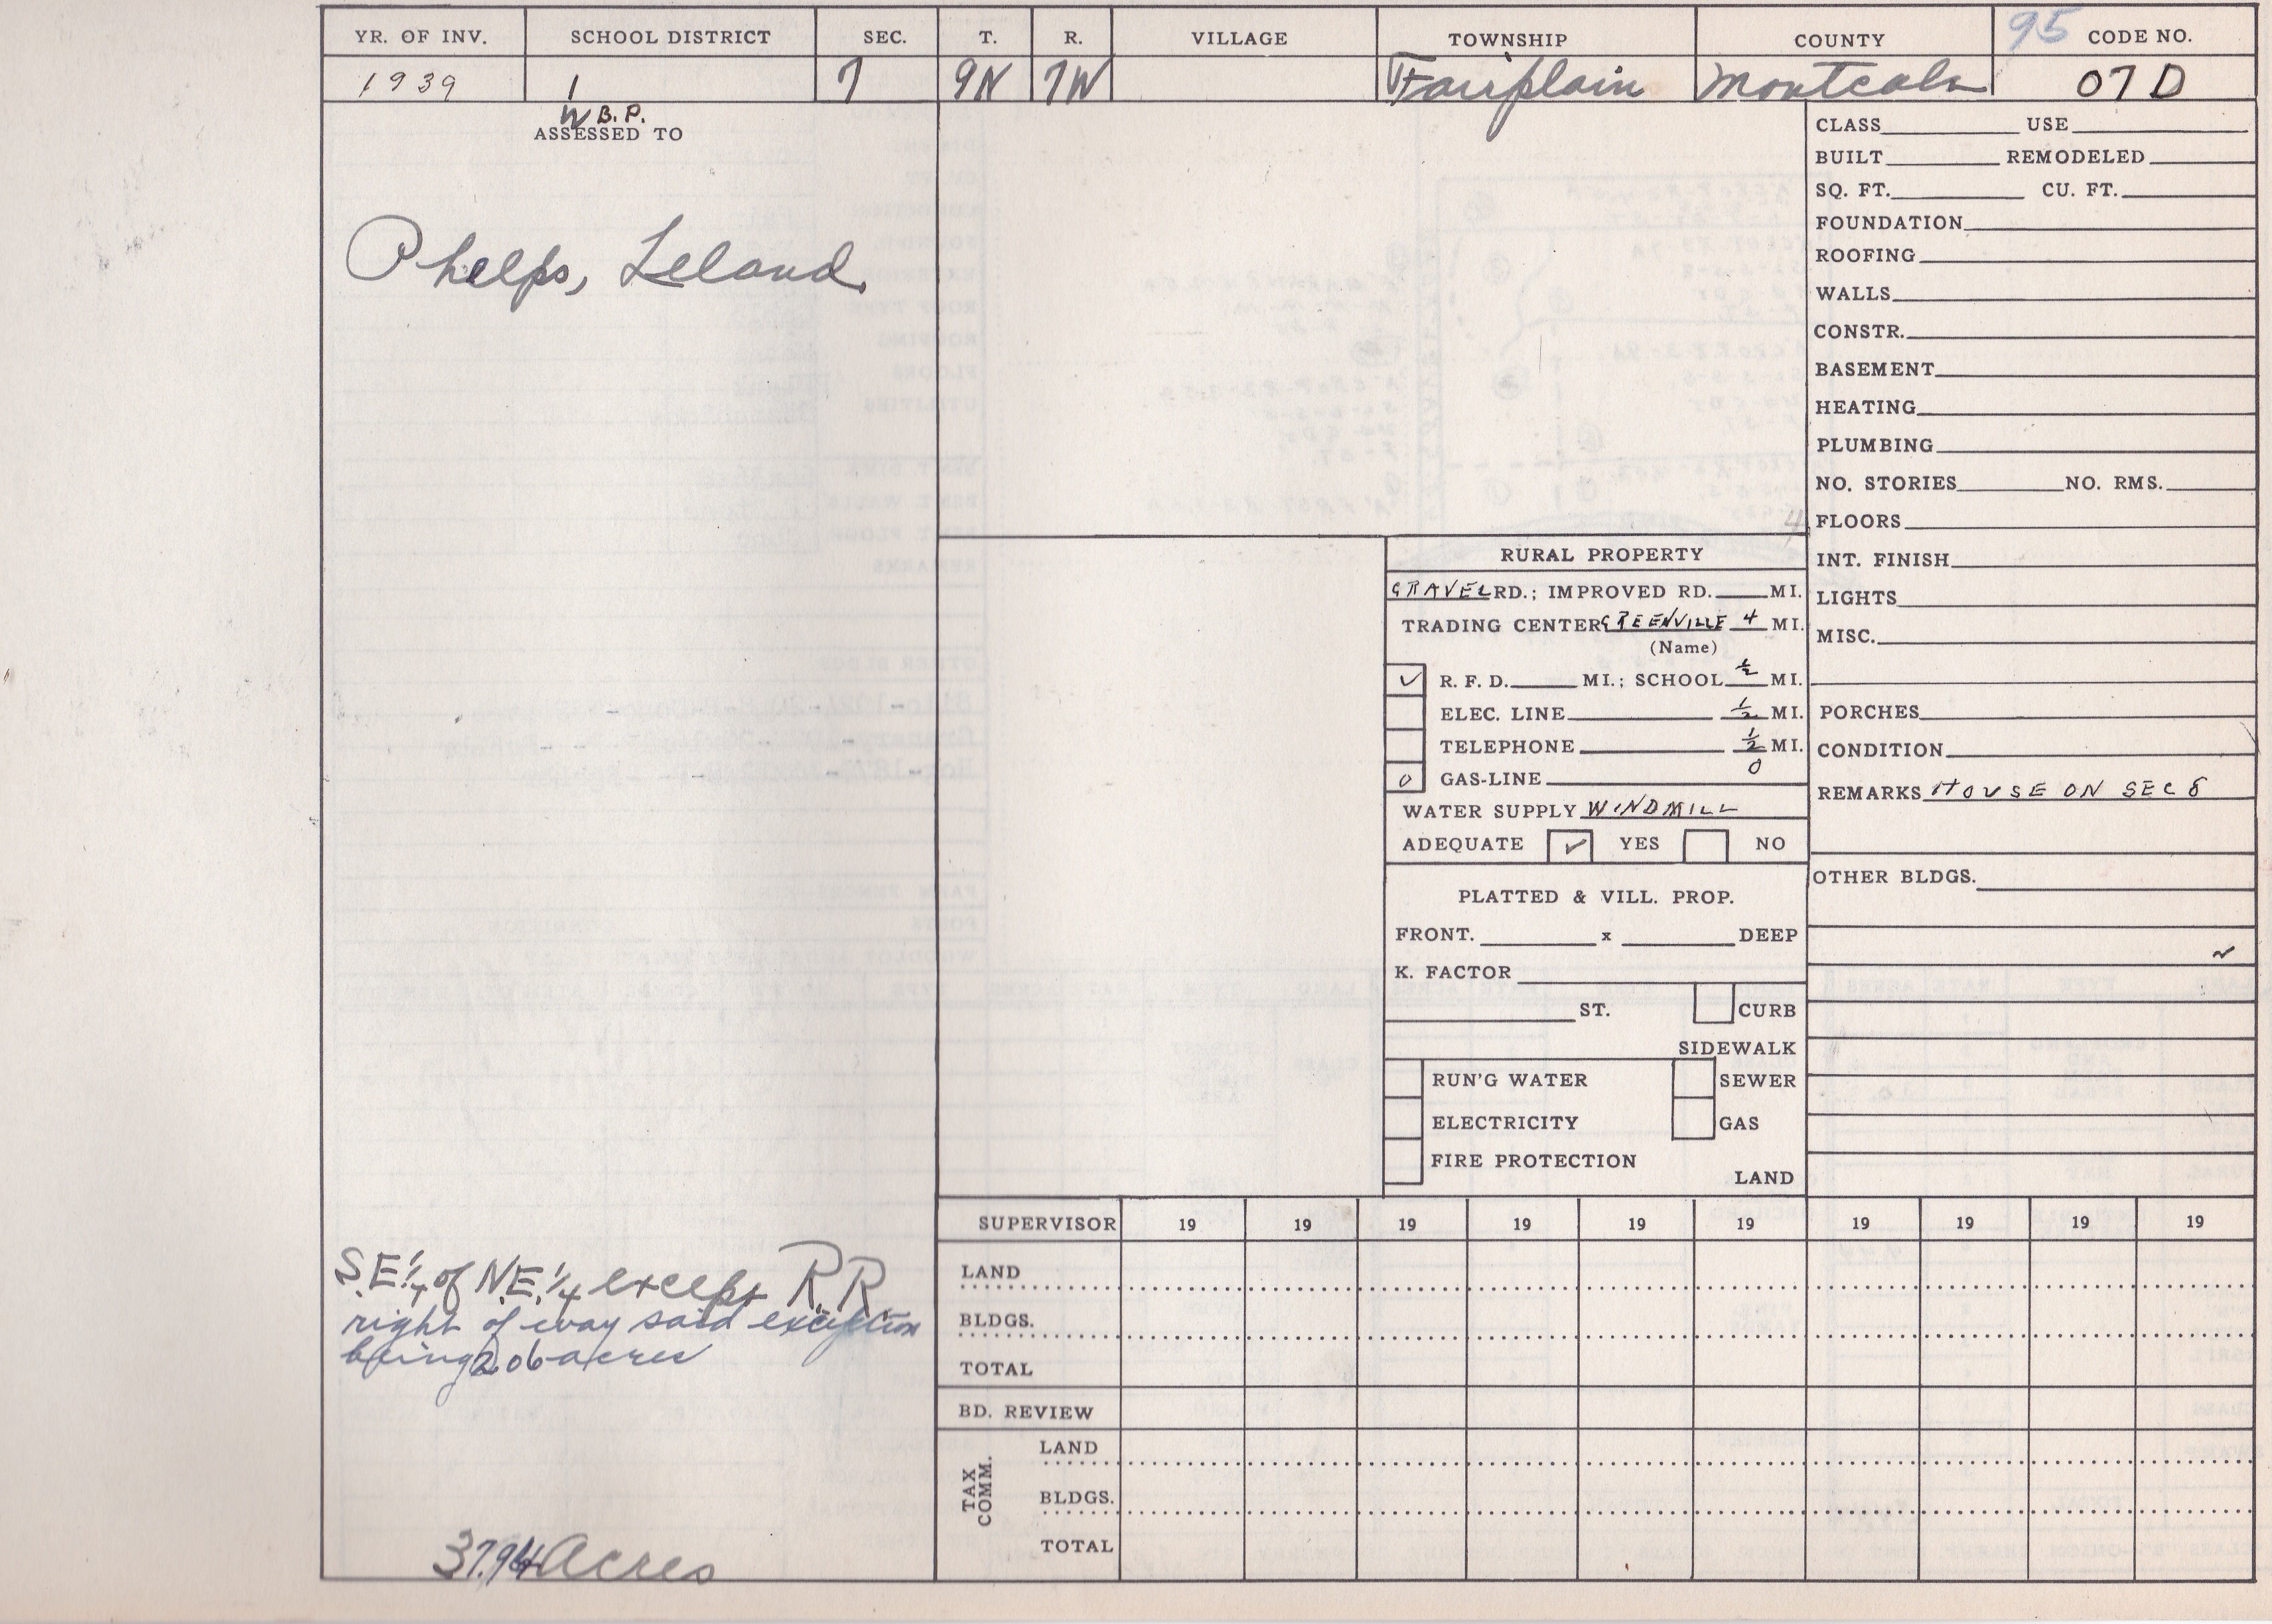 YR. OF INV. SCHOOL DISTRICT SEC. T. R. VILLAGE TOWNSHIP COUNTY 95 CODE NO.
1939 1 7 9N 7W Fairplain Montcalm 07 D
W B.P.
ASSESSED TO
Phelps, Leland
S.E. 1/4 of N.E. 1/4 except R.R.
right of way said exception
being 2.06 acres
37.94 Acres
RURAL PROPERTY
GRAVEL RD.; IMPROVED RD. MI.
TRADING CENTER GREENVILLE 4 MI.
(Name)
✓ R. F. D. MI.; SCHOOL 1/2 MI.
ELEC. LINE 1/2 MI.
TELEPHONE 1/2 MI.
0 GAS-LINE 0
WATER SUPPLY WINDMILL
ADEQUATE ✓ YES NO
PLATTED & VILL. PROP.
FRONT. x DEEP
K. FACTOR
ST. CURB
SIDEWALK
RUN'G WATER SEWER
ELECTRICITY GAS
FIRE PROTECTION
LAND
CLASS USE
BUILT REMODELED
SQ. FT. CU. FT.
FOUNDATION
ROOFING
WALLS
CONSTR.
BASEMENT
HEATING
PLUMBING
NO. STORIES NO. RMS.
4 FLOORS
INT. FINISH
LIGHTS
MISC.
PORCHES
CONDITION
REMARKS HOUSE ON SEC 8
OTHER BLDGS.
SUPERVISOR 19 19 19 19 19 19 19 19 19 19
LAND
BLDGS.
TOTAL
BD. REVIEW
TAX COMM.
LAND
BLDGS.
TOTAL